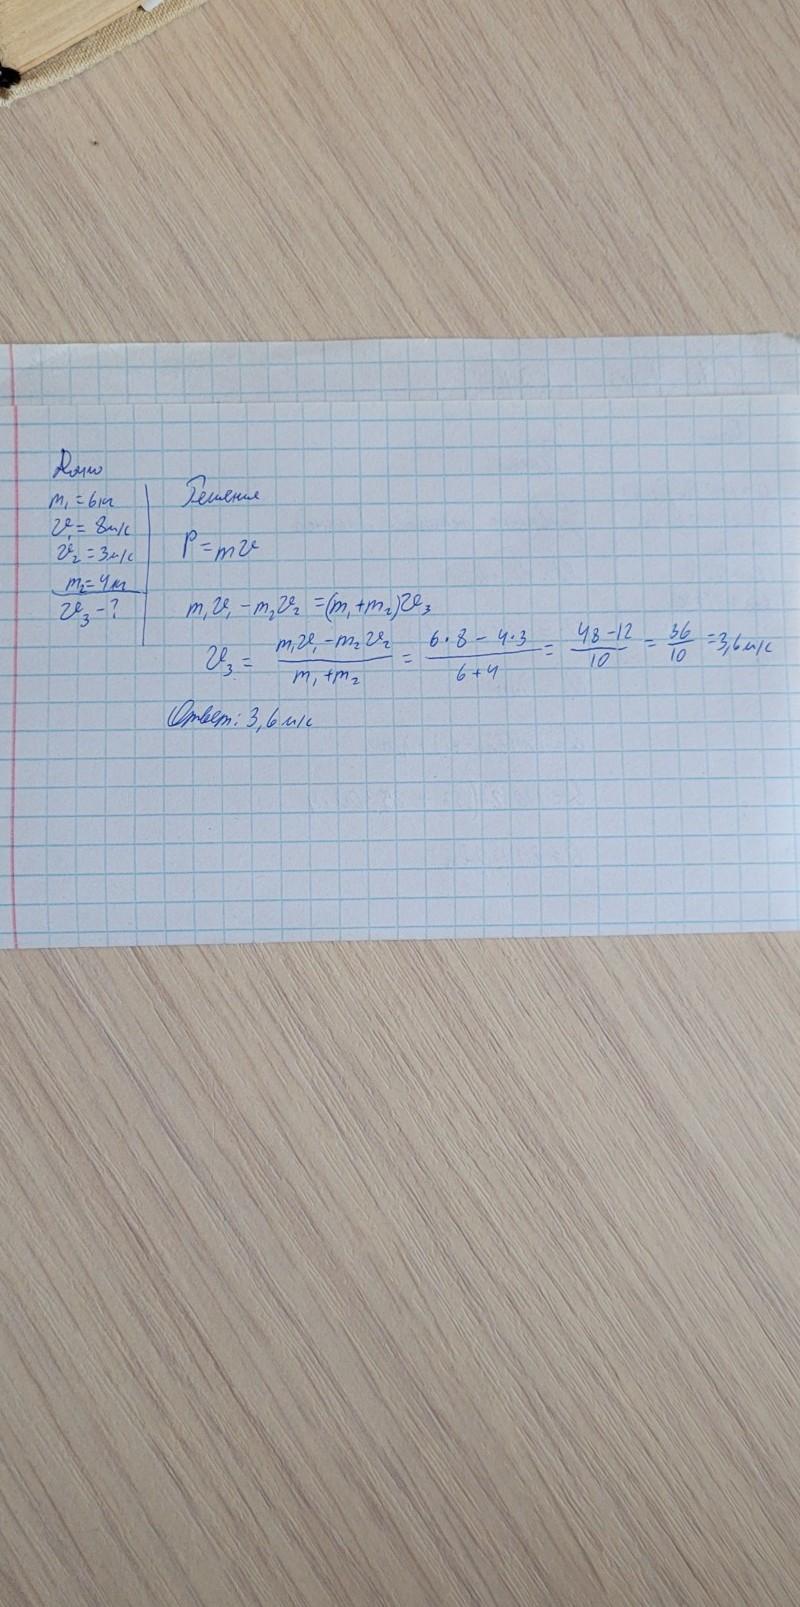 Дано
m₁ = 6 кг
v₁ = 8 м/с
v₂ = 3 м/с
m₂ = 4 кг
v₃ - ?
Решение
P = mv
m₁v₁ - m₂v₂ = (m₁ + m₂)v₃
v₃ = (m₁v₁ - m₂v₂)/(m₁ + m₂) = (6·8 - 4·3)/(6+4) = (48-12)/10 = 36/10 = 3,6 м/с
Ответ: 3,6 м/с